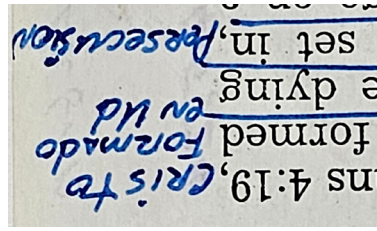 ns 4:19, CRISTO
formed FORMADO
e dying EN Ud
set in, PERSECUSION